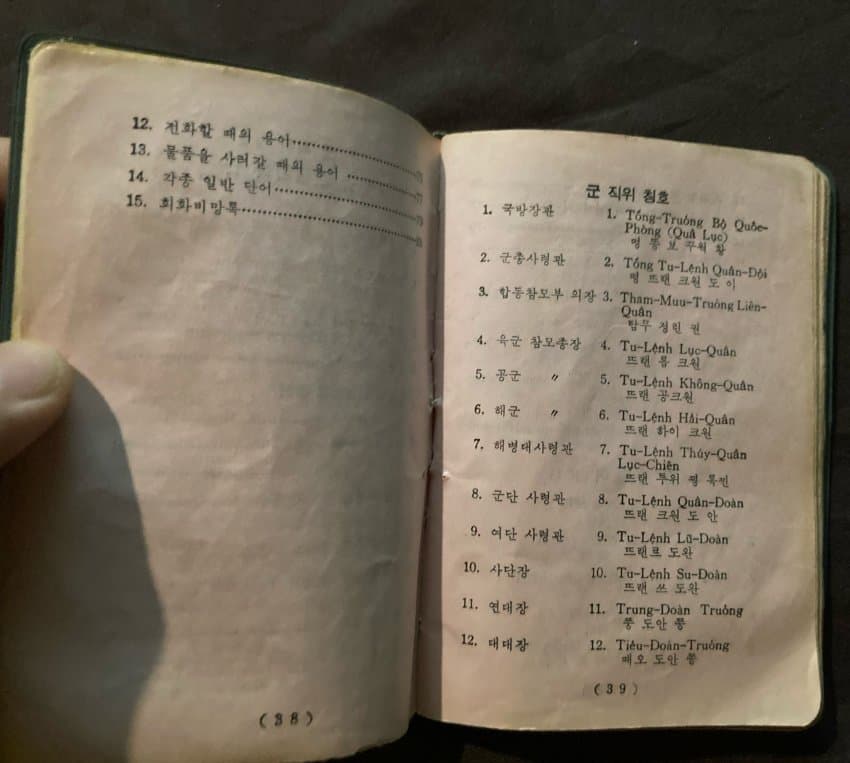 12. 전화할 때의 용어
13. 물품을 사러갈 때의 용어
14. 각종 일반 단어
15. 회화비망록
( 38 )
군 직위 칭호
1. 국방장관 1. Tổng-Truỏng Bộ Quốc-
Phòng (Quâ Lục)
명 뚱 보 꾸워 황
2. 군총사령관 2. Tổng Tu-Lệnh Quân-Đội
명 뜨랜 크원 도 이
3. 합동참모부 의장 3. Tham-Muu-Truỏng Liên-
Quân
탐무 정린 퀀
4. 육군 참모총장 4. Tu-Lệnh Lục-Quân
뜨랜 룸 크원
5. 공군 〃 5. Tu-Lệnh Không-Quân
뜨랜 공크원
6. 해군 〃 6. Tu-Lệnh Hải-Quân
뜨랜 하이 크원
7. 해병대사령관 7. Tu-Lệnh Thủy-Quân
Lục-Chiên
뜨랜 투위 퀑 룩찐
8. 군단 사령관 8. Tu-Lệnh Quân-Doàn
뜨랜 크원 도 안
9. 여단 사령관 9. Tu-Lệnh Lũ-Doàn
뜨랜르 도완
10. 사단장 10. Tu-Lệnh Su-Doàn
뜨랜 쓰 도완
11. 연대장 11. Trung-Doàn Truỏng
쭝 도안 쫑
12. 대대장 12. Tiểu-Doàn-Truỏng
떼오 도안 쫑
( 39 )